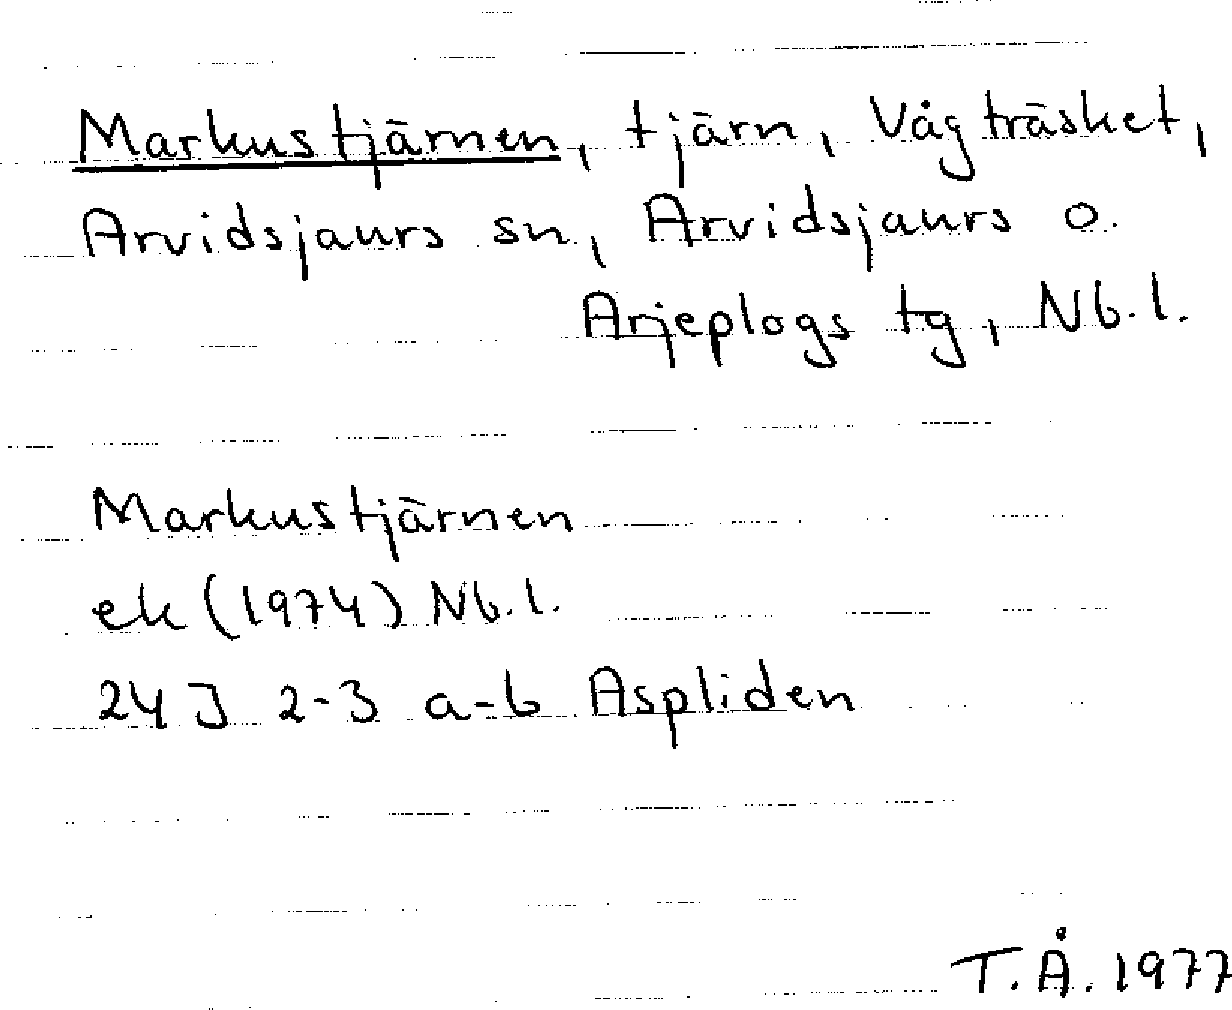 Markustjärnen, tjärn, Vågträsket,
Arvidsjaurs sn, Arvidsjaurs o.
Arjeplogs tg, Nb.l.
Markustjärnen
ek (1974) Nb.l.
24 J 2-3 a-b Aspliden
T.Å. 1977